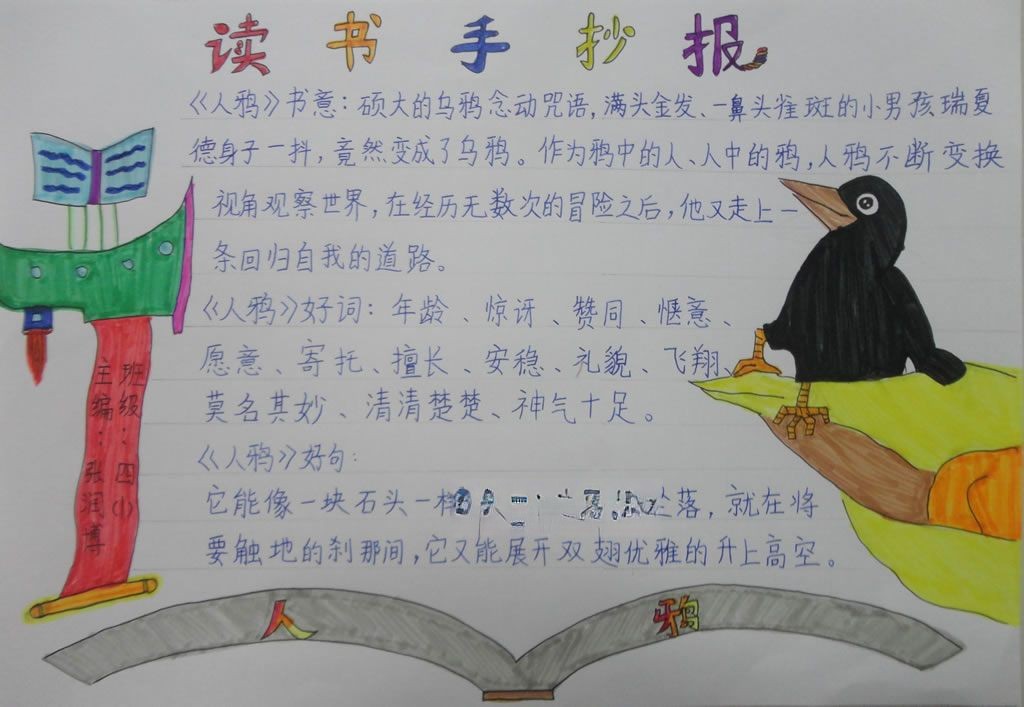 读书手抄报
《人鸦》书意：硕大的乌鸦念动咒语，满头金发、一鼻头雀斑的小男孩瑞夏
德身子一抖，竟然变成了乌鸦。作为鸦中的人、人中的鸦，人鸦不断变换
视角观察世界，在经历无数次的冒险之后，他又走上一
条回归自我的道路。
《人鸦》好词：年龄、惊讶、赞同、惬意、
愿意、寄托、擅长、安稳、礼貌、飞翔、
莫名其妙、清清楚楚、神气十足。
《人鸦》好句：
它能像一块石头一样 坠落，就在将
要触地的刹那间，它又能展开双翅优雅的升上高空。
班级：四(1)
主编：张润博
人 鸦